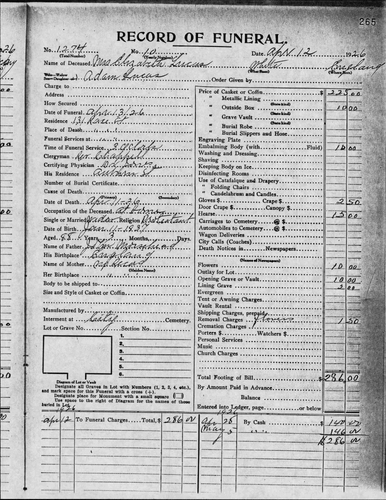 265
RECORD OF FUNERAL.
No. 1274 No. 10 Date, Apr 12 1926
(Total Number)
Name of Deceased, Mrs Elizabeth Lucas White England
Adam Lucas Order Given by
Charge to
Address
How Secured
Date of Funeral, Apr 13/26
Residence
Place of Death,
Funeral Services at
Time of Funeral Service,
Clergyman
Certifying Physician
His Residence
Number of Burial Certificate
Cause of Death,
Date of Death, Apr 11-26
Occupation of the Deceased, at home
Single or Married, Religion Protestant
Date of Birth, Jan 11-1837
Aged, Years, Months, Days.
Name of Father,
His Birthplace England
Name of Mother,
(Maiden Name)
Her Birthplace
Body to be shipped to
Size and Style of Casket or Coffin.
Manufactured by
Interment at City Cemetery.
Lot or Grave No. Section No.
Diagram of Lot or Vault
Designate all Graves in Lot with Numbers (1, 2, 3, 4, etc.), and mark space for this Funeral with a cross (+).
Designate place for Monument with a small square
Use the space to right of Diagram for the names of those buried in Lot.
Price of Casket or Coffin, $ 225.00
" Metallic Lining
" Outside Box 10 00
" Grave Vault
" Burial Robe
" Burial Slippers and Hose
Engraving Plate
Embalming Body (with Fluid) 10 00
Washing and Dressing,
Shaving
Keeping on Ice
Disinfecting Rooms
Use of Catafalque and Drapery
" Folding Chairs
" Candelabrum and Candles.
Gloves $ Crape $ 2 50
Hearse 15 00
Carriages to Cemetery @ $
Automobiles to Cemetery @ $
Wagon Deliveries
City Calls (Coaches)
Death Notices in Newspapers.
(Names of Newspapers)
Flowers 10 00
Outlay for Lot
Opening Grave or Vault 10 00
Lining Grave 2 00
Evergreen
Tent or Awning Charges
Vault Rental
Shipping Charges, prepaid
Removal Charges flowers 1 50
Cremation Charges
Porters $ Watchers $
Personal Services
Music
Church Charges
Total Footing of Bill, $ 286 00
By Amount Paid in Advance
Balance
Entered into Ledger, page or below.
1926
Apr 12 To Funeral Charges Total, $ 286 00
1926
Apr 28 By Cash $ 140 00
May 3 " " 146 00
$ 286 00